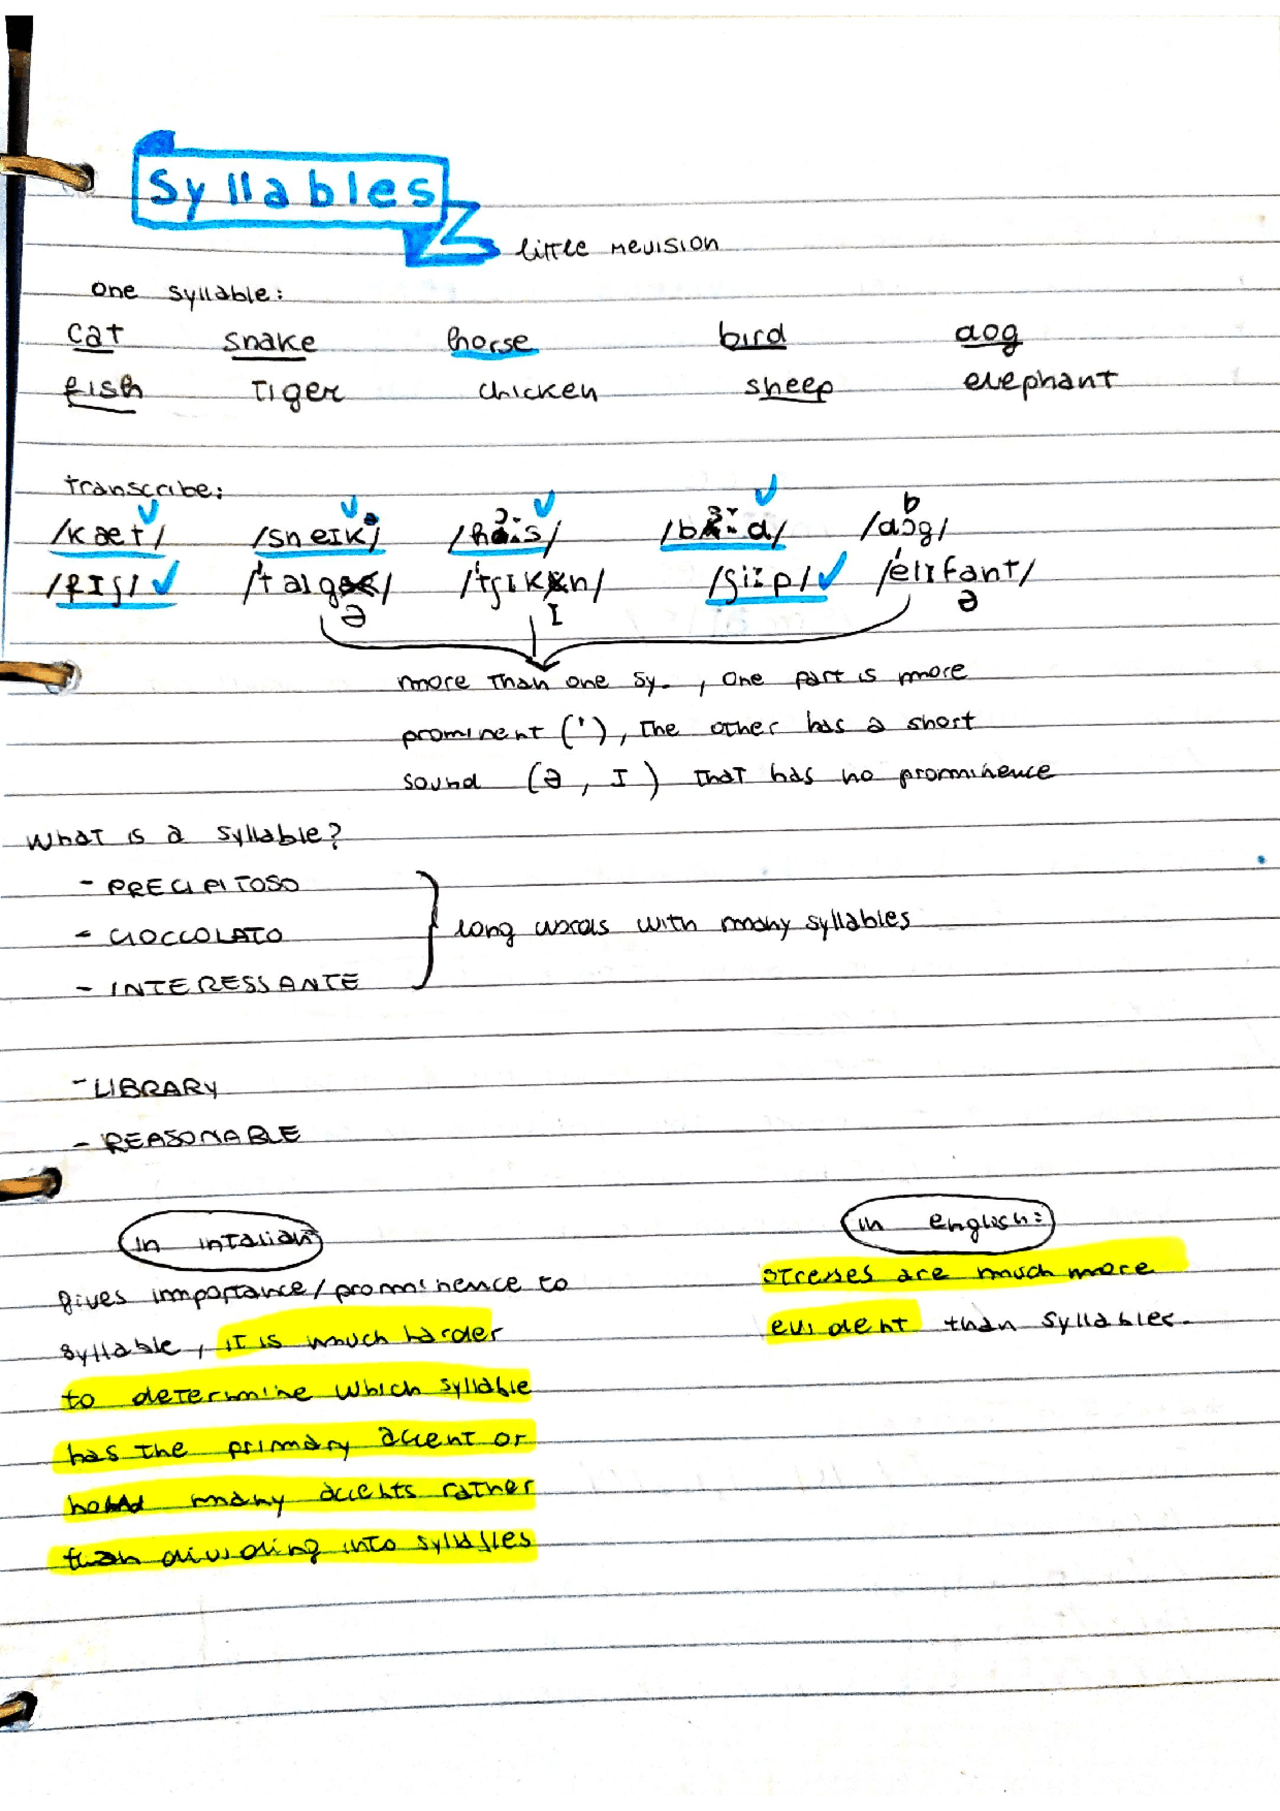 Syllables
little revision
one syllable:
cat snake horse bird dog
fish tiger chicken sheep elephant
transcribe:
/kæt/ /sneɪk/ /hɔːs/ /bɜːd/ /dɒg/
/fɪʃ/ /'taɪgə/ /'tʃɪkɪn/ /ʃiːp/ /'elɪfənt/
more than one sy., one part is more
prominent ('), the other has a short
sound (ə, ɪ) that has no promminence
What is a syllable?
- PRECIPITOSO
- CIOCCOLATO
- INTERESSANTE
long words with many syllables
- LIBRARY
- REASONABLE
in intalian
gives importance/prominence to
syllable, it is much harder
to determine which syllable
has the primary accent or
many accents rather
than dividing into syllables
in english:
stresses are much more
evident than syllables.